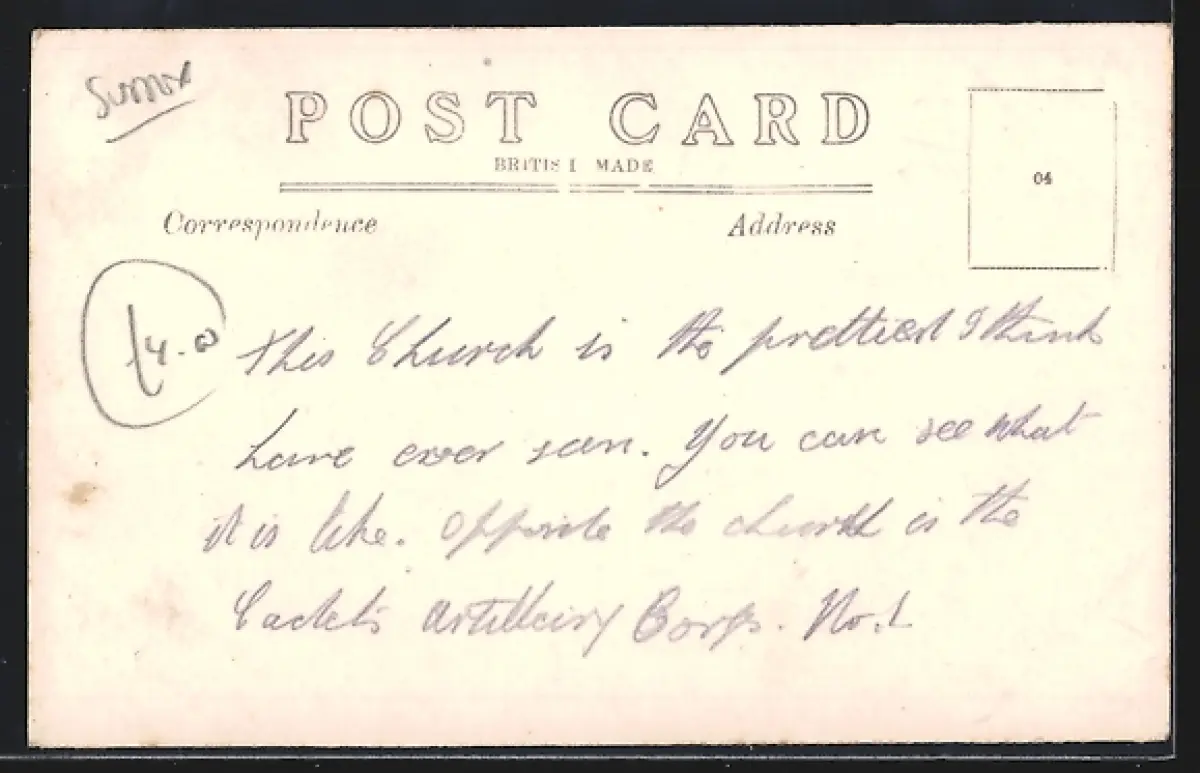 Sussex
POST CARD
BRITISH MADE
Correspondence
Address
04
£4.00
This Church is the prettiest I think
have ever seen. You can see what
it is like. Opposite the church is the
Cadets Artillery Corps. No.1